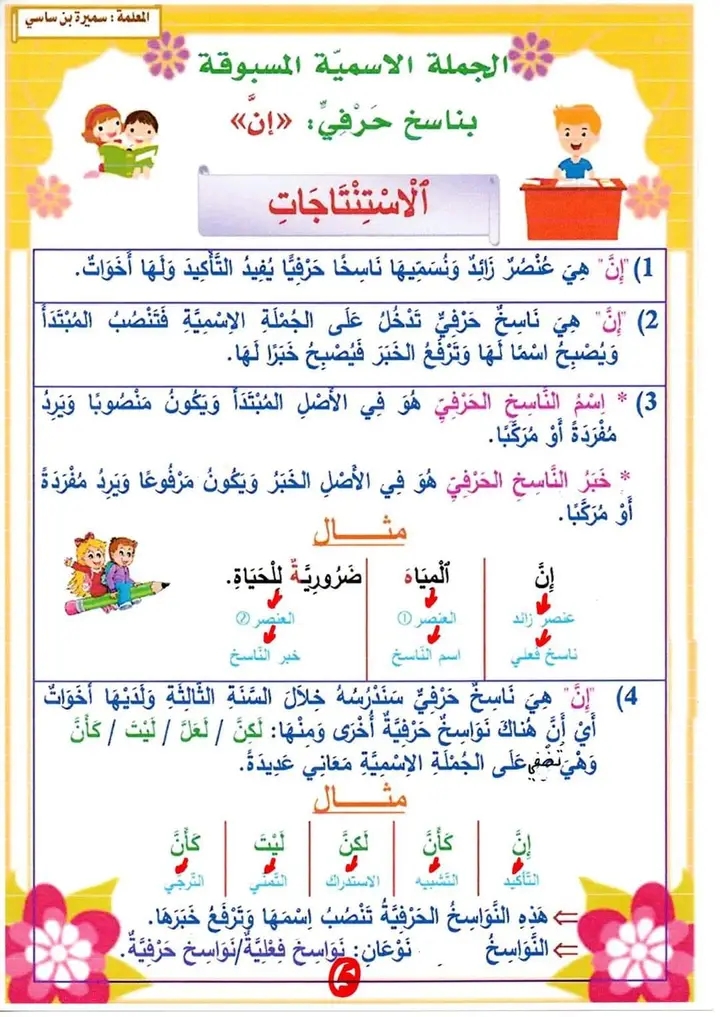 المعلمة : سميرة بن ساسي
الجملة الاسميّة المسبوقة
بناسخ حَرْفِيٍّ: «إنَّ»
اَلْاسْتِنْتَاجَاتِ
1) "إِنَّ" هِيَ عُنْصُرٌ زَائِدٌ وَنُسَمِّيهَا نَاسِخًا حَرْفِيًّا يُفِيدُ التَّأْكِيدَ وَلَهَا أَخَوَاتٌ.
2) "إِنَّ" هِيَ نَاسِخٌ حَرْفِيٌّ تَدْخُلُ عَلَى الجُمْلَةِ الِاسْمِيَّةِ فَتَنْصُبُ المُبْتَدَأَ
وَيُصْبِحُ اسْمًا لَهَا وَتَرْفَعُ الخَبَرَ فَيُصْبِحُ خَبَرًا لَهَا.
3) * اِسْمُ النَّاسِخِ الحَرْفِيِّ هُوَ فِي الأَصْلِ المُبْتَدَأُ وَيَكُونُ مَنْصُوبًا وَيَرِدُ
مُفْرَدَةً أَوْ مُرَكَّبًا.
* خَبَرُ النَّاسِخِ الحَرْفِيِّ هُوَ فِي الأَصْلِ الخَبَرُ وَيَكُونُ مَرْفُوعًا وَيَرِدُ مُفْرَدَةً
أَوْ مُرَكَّبًا.
مثال
إِنَّ الْمِيَاهَ ضَرُورِيَّةٌ لِلْحَيَاةِ.
عنصر زائد العنصر ① العنصر ②
ناسخ فعلي اسم النّاسخ خبر النّاسخ
4) "إِنَّ" هِيَ نَاسِخٌ حَرْفِيٌّ سَنَدْرُسُهُ خِلَالَ السَّنَةِ الثَّالِثَةِ وَلَدَيْهَا أَخَوَاتٌ
أَيْ أَنَّ هُنَاكَ نَوَاسِخٌ حَرْفِيَّةٌ أُخْرَى وَمِنْهَا: لَكِنَّ / لَعَلَّ / لَيْتَ / كَأَنَّ
وَهْيَ تُضْفِي عَلَى الجُمْلَةِ الِاسْمِيَّةِ مَعَانِي عَدِيدَةً.
مثال
إِنَّ كَأَنَّ لَكِنَّ لَيْتَ كَأَنَّ
التّأكيد التّشبيه الاستدراك التّمنّي التّرجّي
⇐ هَذِهِ النَّوَاسِخُ الحَرْفِيَّةُ تَنْصُبُ اِسْمَهَا وَتَرْفَعُ خَبَرَهَا.
⇐ النَّوَاسِخُ نَوْعَانِ: نَوَاسِخُ فِعْلِيَّةٌ/نَوَاسِخُ حَرْفِيَّةٌ.